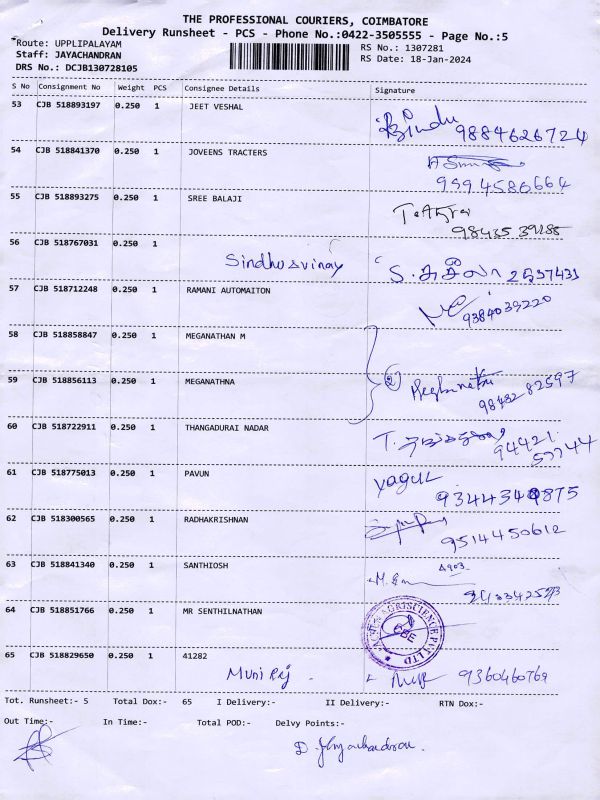 THE PROFESSIONAL COURIERS, COIMBATORE
Delivery Runsheet - PCS - Phone No.:0422-3505555 - Page No.:5
Route: UPPLIPALAYAM
RS No.: 1307281
Staff: JAYACHANDRAN
RS Date: 18-Jan-2024
DRS No.: DCJB130728105
S No Consignment No Weight PCS Consignee Details Signature
53 CJB 518893197 0.250 1 JEET VESHAL
Bindu 9884626724
54 CJB 518841370 0.250 1 JOVEENS TRACTERS
9994586664
55 CJB 518893275 0.250 1 SREE BALAJI
98435 39185
56 CJB 518767031 0.250 1
Sindhu & vinay S.சுசீலா
57 CJB 518712248 0.250 1 RAMANI AUTOMAITON
9384039220
58 CJB 518858847 0.250 1 MEGANATHAN M
59 CJB 518856113 0.250 1 MEGANATHNA
② Meghanatha
82597
60 CJB 518722911 0.250 1 THANGADURAI NADAR
T. 94421
57744
61 CJB 518775013 0.250 1 PAVUN
yagul
62 CJB 518300565 0.250 1 RADHAKRISHNAN
9514450612
63 CJB 518841340 0.250 1 SANTHIOSH
64 CJB 518851766 0.250 1 MR SENTHILNATHAN
AGRISCIENCE PVT LTD
CBE
65 CJB 518829650 0.250 1 41282
Muni Raj 9360460769
Tot. Runsheet:- 5 Total Dox:- 65 I Delivery:- II Delivery:- RTN Dox:-
Out Time:- In Time:- Total POD:- Delvy Points:-
D. Jayachandran.